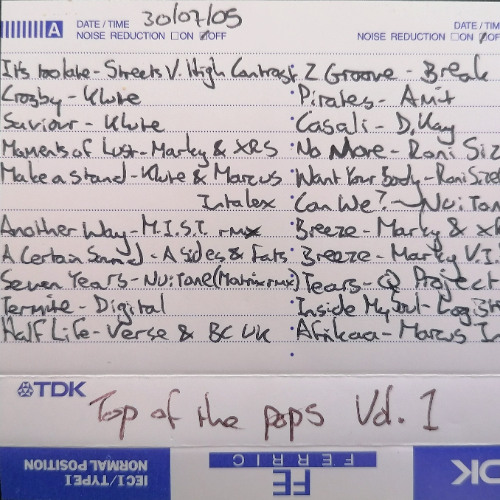 A DATE / TIME 30/07/05 DATE / TIM
NOISE REDUCTION ON OFF NOISE REDUCTION ON OF
It's too late - Streets V. High Contrast
Crosby - Klute
Saviour - Klute
Moments of Lust - Marky & XRS
Make a Stand - Klute & Marcus
Intalex
Another Way - M.I.S.T. rmx
A Certain Sound - A Sides & Fats
Seven Years - Nu:Tone (Matrix rmx)
Termite - Digital
Half Life - Verse & BC UK
Z Groove - Break
Pirates - Amit
Casali - D.Kay
No More - Roni Siz
Want Your Body - Roni Size
Can We? - Nu:Ton
Breeze - Marky & X
Breeze - Marky V.I.
Tears - Q Project
Inside My Soul - Logist
Afrikaa - Marcus In
TDK Top of the pops Vol. 1
IEC I / TYPE I
NORMAL POSITION
FE
FERRIC
DK